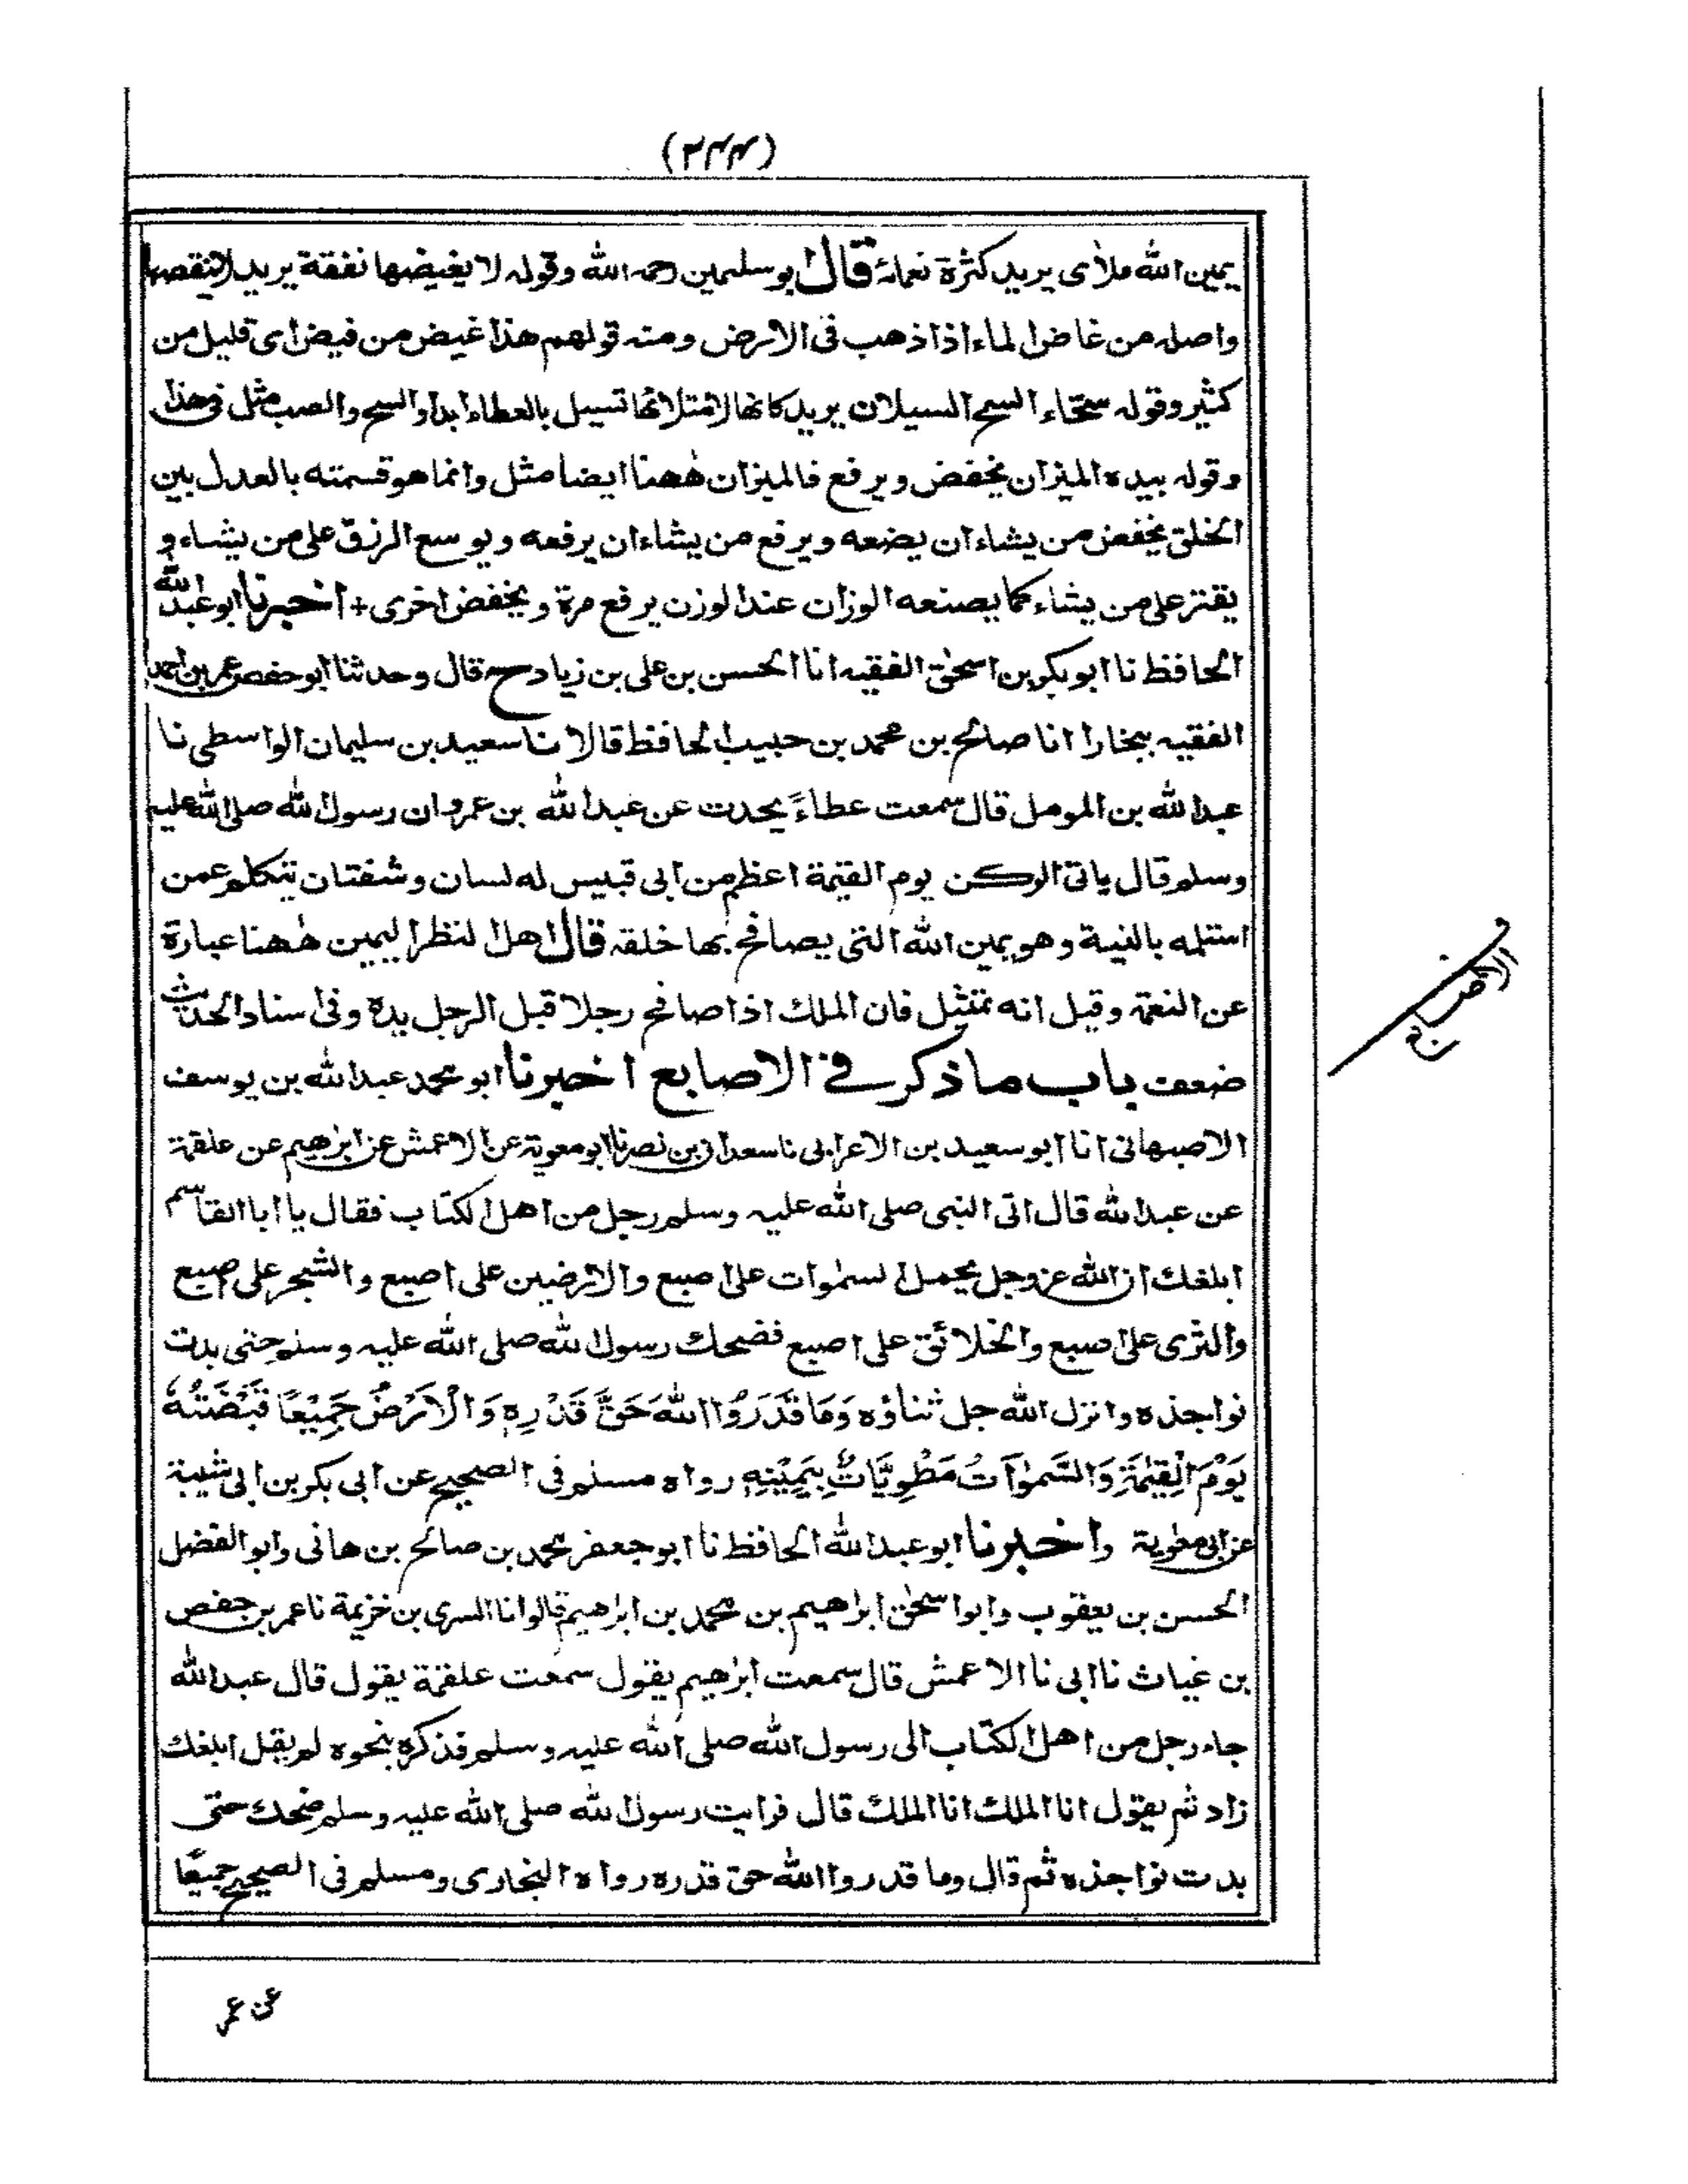 يمين الله ملأى يريد كثرة نعمائه قال ابو سليمن رحمه الله وقوله لا يغيضها نفقة يريد لا ينقصها
واصله من غاض الماء اذا ذهب فى الارض ومنه قولهم هذا غيض من فيض اى قليل من
كثير وقوله سحّاء السح السيلان يريد كانها لامتلائها تسيل بالعطاء ابدا والسح والصب مثل فى هذا
وقوله بيده الميزان يخفض ويرفع فالميزان ههنا ايضا مثل وانما هو قسمته بالعدل بين
الخلق يخفض من يشاء ان يضعه ويرفع من يشاء ان يرفعه ويوسع الرزق على من يشاء و
يقتر على من يشاء كما يصنعه الوزان عند الوزن يرفع مرة ويخفض اخرى + اخبرنا ابو عبد الله
الحافظ نا ابو بكر بن اسحٰق الفقيه انا الحسن بن على بن زياد ح قال وحدثنا ابو حفص عمر بن احمد
الفقيه ببخارا انا صالح بن محمد بن حبيب الحافظ قالا نا سعيد بن سليمان الواسطى نا
عبد الله بن المومل قال سمعت عطاءً يحدث عن عبد الله بن عمرو ان رسول الله صلى الله عليه
وسلم قال ياتى الركن يوم القيٰمة اعظم من ابى قبيس له لسان وشفتان يتكلم عمن
استلمه بالنية وهو يمين الله التى يصافح بها خلقه قال اهل النظر اليمين هٰهنا عبارة
عن النعمة وقيل انه تمثيل فان الملك اذا صافح رجلا قبل الرجل يده وفى اسناد الحديث
ضعف باب ما ذكر فى الاصابع اخبرنا ابو محمد عبد الله بن يوسف
الاصبهانى انا ابو سعيد بن الاعرابى نا سعدان بن نصر نا ابو معوية عن الاعمش عن ابرٰهيم عن علقمة
عن عبد الله قال اتى النبى صلى الله عليه وسلم رجل من اهل الكتاب فقال يا ابا القاسم
ابلغك ان الله عز وجل يحمل السمٰوات على اصبع والارضين على اصبع والشجر على اصبع
والثرى على اصبع والخلائق على اصبع فضحك رسول الله صلى الله عليه وسلم حتى بدت
نواجذه وانزل الله جل ثناؤه وَمَا قَدَرُوا اللهَ حَقَّ قَدْرِهٖ وَالْاَرْضُ جَمِيْعًا قَبْضَتُهٗ
يَوْمَ الْقِيٰمَةِ وَالسَّمٰوَاتُ مَطْوِيَّاتٌ بِيَمِيْنِهٖ رواه مسلم فى الصحيح عن ابى بكر بن ابى شيبة
عن ابى معٰوية واخبرنا ابو عبد الله الحافظ نا ابو جعفر محمد بن صالح بن هانى وابو الفضل
الحسن بن يعقوب وابو اسحٰق ابراهيم بن محمد بن ابراهيم قالوا نا السرى بن خزيمة نا عمر بن حفص
بن غياث نا ابى نا الاعمش قال سمعت ابرٰهيم يقول سمعت علقمة يقول قال عبد الله
جاء رجل من اهل الكتاب الى رسول الله صلى الله عليه وسلم فذكره بنحوه لم يقل ابلغك
زاد ثم يقول انا الملك انا الملك قال فرايت رسول الله صلى الله عليه وسلم ضحك حتى
بدت نواجذه ثم قال وما قدروا الله حق قدره رواه البخارى ومسلم فى الصحيح جميعًا
عن عمر